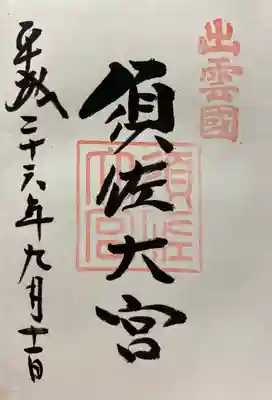 出雲國
須佐大宮
須佐大宮
平成二十六年九月十一日